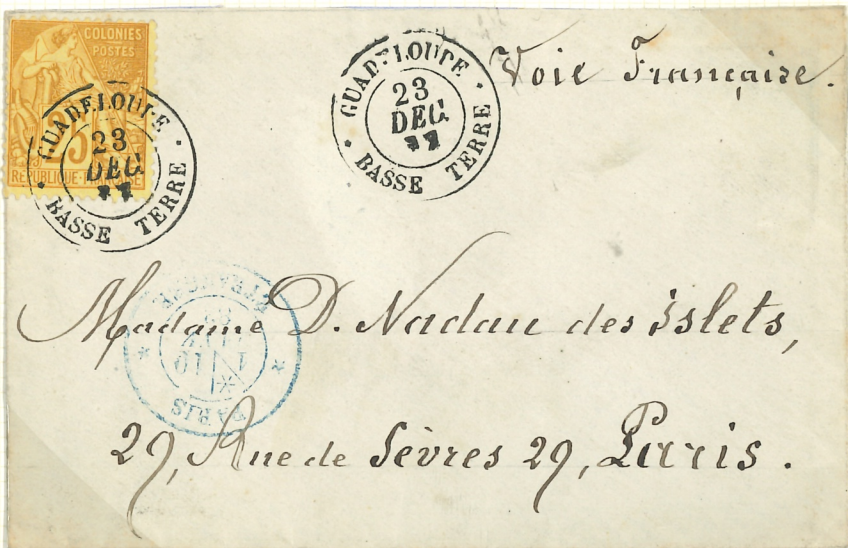 COLONIES
POSTES
25
RÉPUBLIQUE FRANÇAISE
GUADELOUPE
23
DEC.
BASSE TERRE
GUADELOUPE
23
DEC.
BASSE TERRE
Voie Française.
Madame D. Nadau des islets,
PARIS
29, Rue de Sèvres 29, Paris.